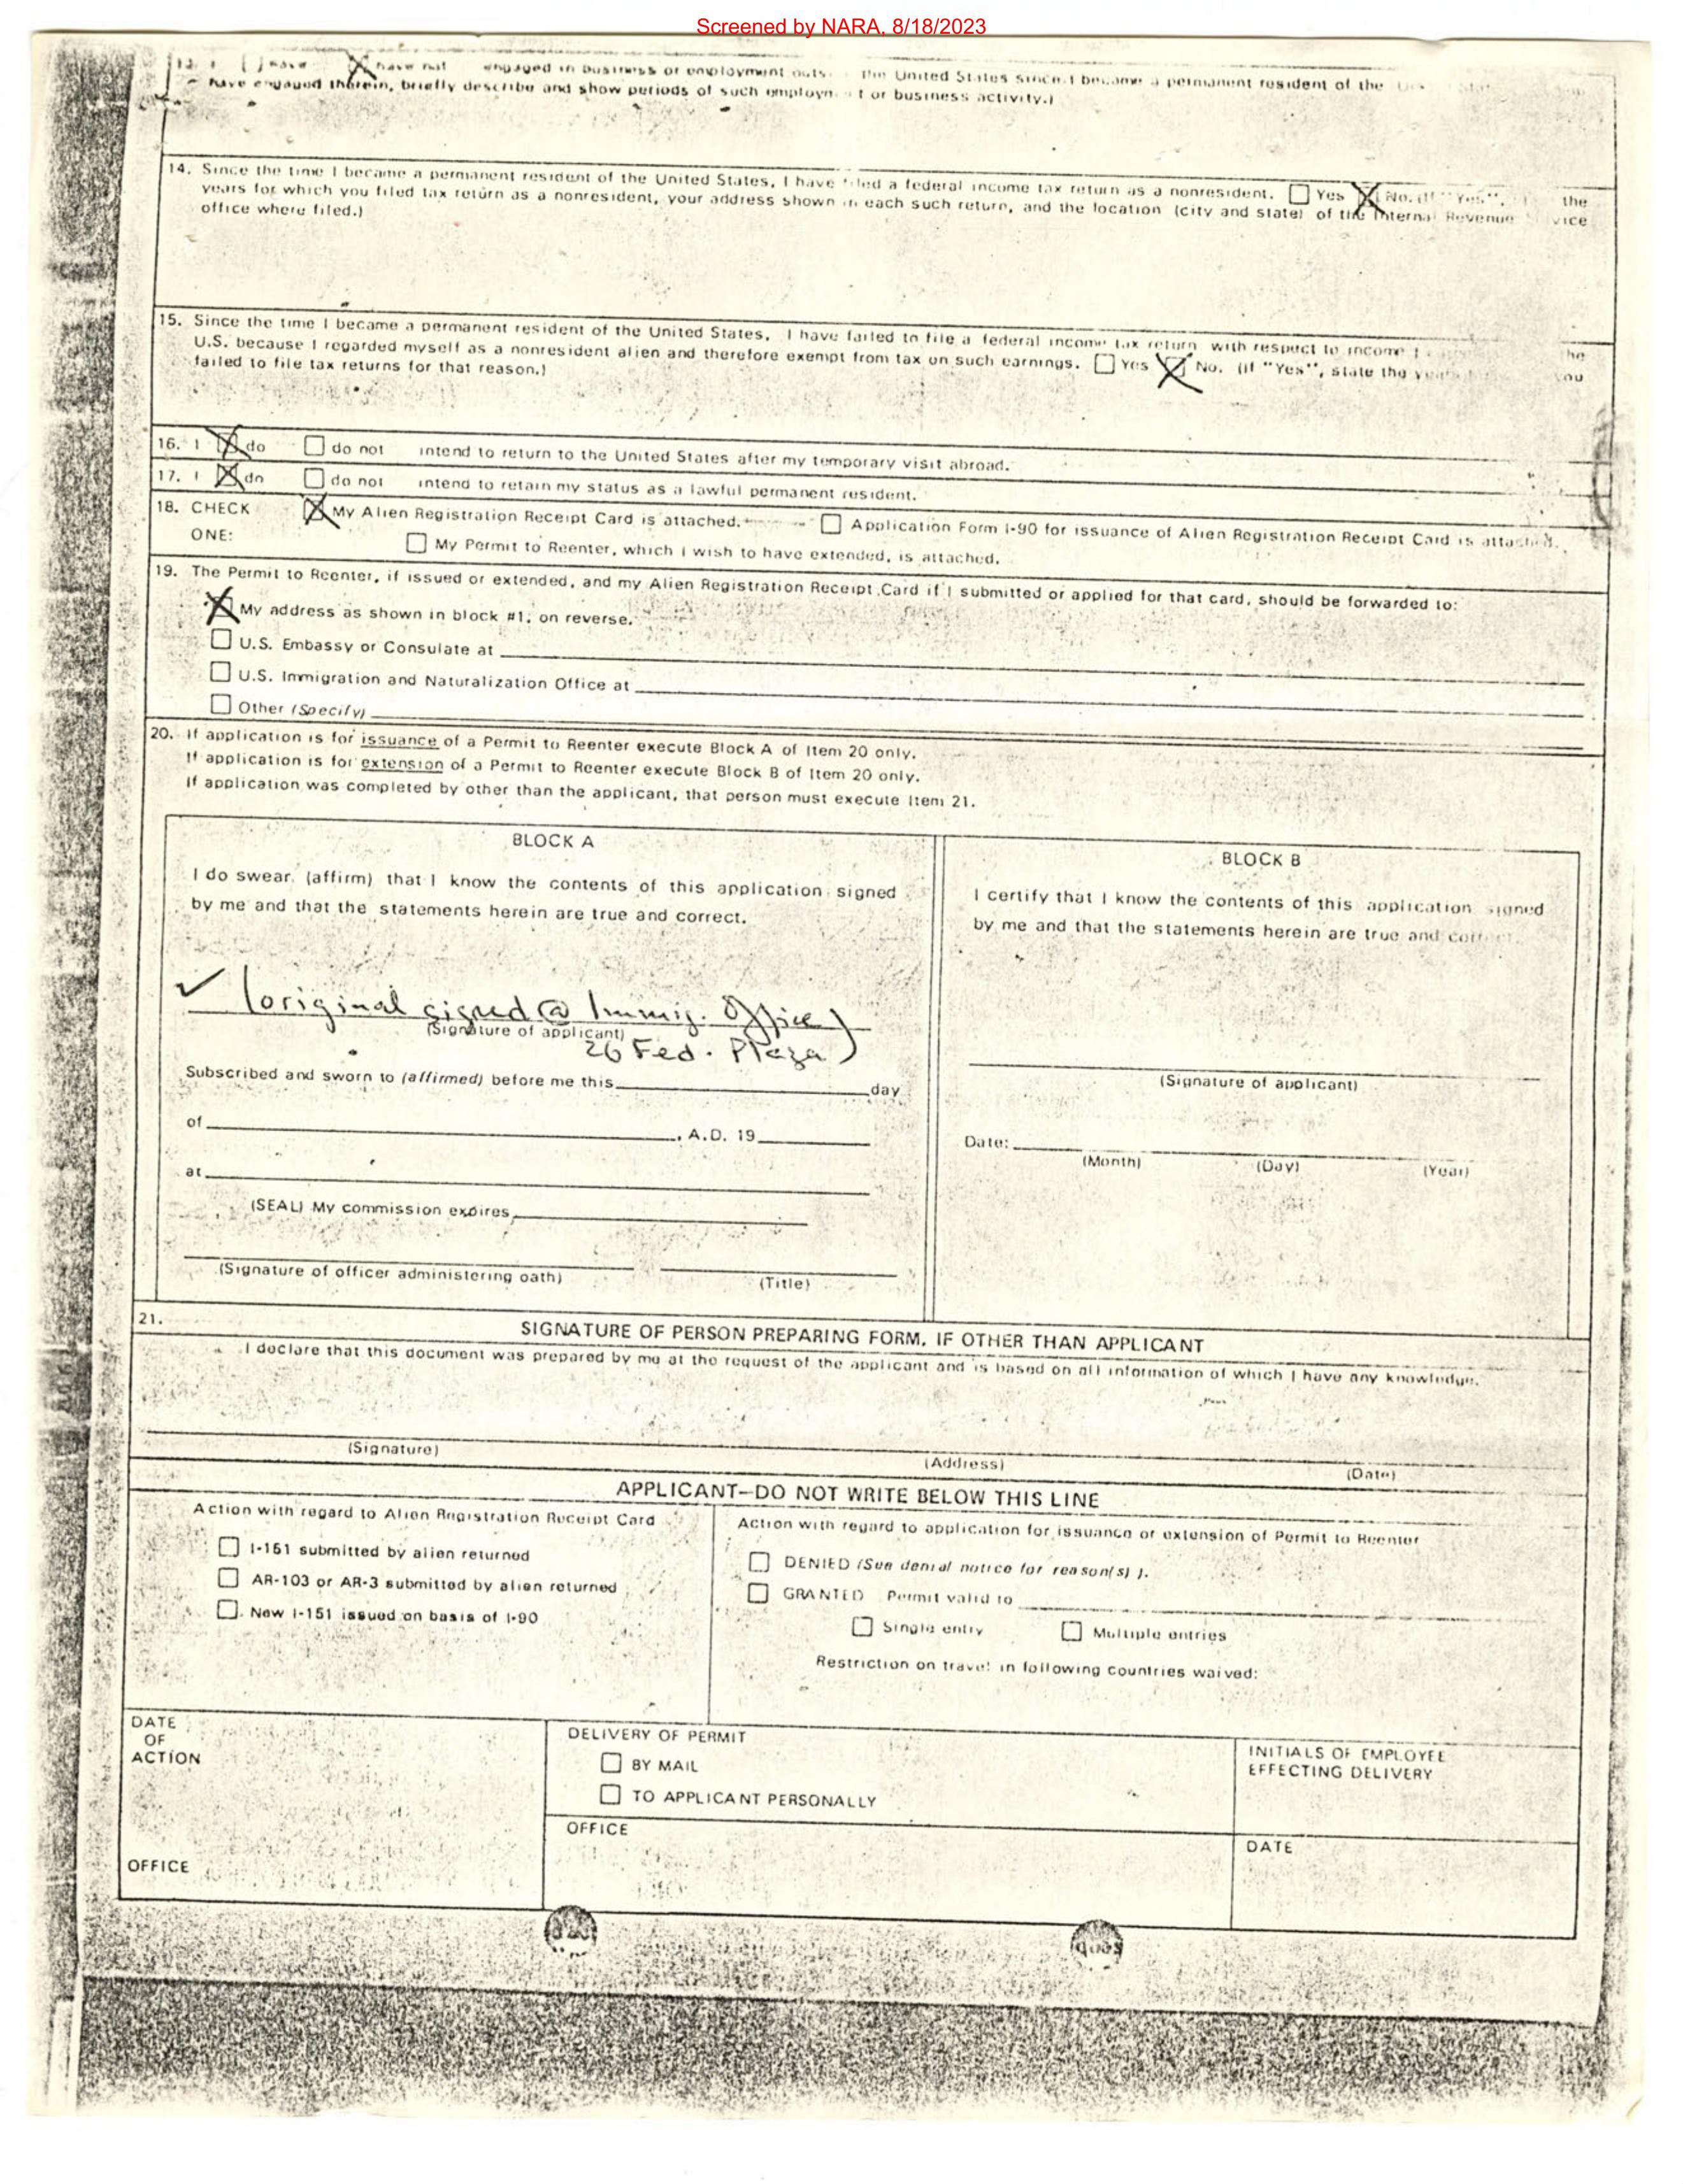 Screened by NARA, 8/18/2023
have not engaged in business or employment the United States since I became a permanent resident of the
have engaged therein, briefly describe and show periods of such or business activity.)
14. Since the time I became a permanent resident of the United States, I have filed a federal income tax return as a nonresident. Yes No. (If "Yes", the
years for which you filed tax return as a nonresident, your address shown in each such return, and the location (city and state) of the Internal Revenue
office where filed.)
15. Since the time I became a permanent resident of the United States, I have failed to file a federal income tax return with respect to income
U.S. because I regarded myself as a nonresident alien and therefore exempt from tax on such earnings. Yes No. (If "Yes", state the
failed to file tax returns for that reason.)
16. I do do not intend to return to the United States after my temporary visit abroad.
17. I do do not intend to retain my status as a lawful permanent resident.
18. CHECK My Alien Registration Receipt Card is attached. Application Form I-90 for issuance of Alien Registration Receipt Card is attached.
ONE:
My Permit to Reenter, which I wish to have extended, is attached.
19. The Permit to Reenter, if issued or extended, and my Alien Registration Receipt Card if I submitted or applied for that card, should be forwarded to:
My address as shown in block #1, on reverse.
U.S. Embassy or Consulate at
U.S. Immigration and Naturalization Office at
Other (Specify)
20. If application is for issuance of a Permit to Reenter execute Block A of Item 20 only.
If application is for extension of a Permit to Reenter execute Block B of Item 20 only.
If application was completed by other than the applicant, that person must execute Item 21.
BLOCK A
I do swear (affirm) that I know the contents of this application signed
by me and that the statements herein are true and correct.
✓ (original signed @ Immig. Office)
(Signature of applicant)
26 Fed. Plaza)
Subscribed and sworn to (affirmed) before me this day
of , A.D. 19
at
(SEAL) My commission expires
(Signature of officer administering oath) (Title)
BLOCK B
I certify that I know the contents of this application signed
by me and that the statements herein are true and correct.
(Signature of applicant)
Date:
(Month) (Day) (Year)
21.
SIGNATURE OF PERSON PREPARING FORM, IF OTHER THAN APPLICANT
I declare that this document was prepared by me at the request of the applicant and is based on all information of which I have any knowledge.
(Signature) (Address) (Date)
APPLICANT—DO NOT WRITE BELOW THIS LINE
Action with regard to Alien Registration Receipt Card
I-151 submitted by alien returned
AR-103 or AR-3 submitted by alien returned
New I-151 issued on basis of I-90
Action with regard to application for issuance or extension of Permit to Reenter
DENIED (See denial notice for reason(s) ).
GRANTED Permit valid to
Single entry Multiple entries
Restriction on travel in following countries waived:
DATE
OF
ACTION
OFFICE
DELIVERY OF PERMIT
BY MAIL
TO APPLICANT PERSONALLY
OFFICE
INITIALS OF EMPLOYEE
EFFECTING DELIVERY
DATE